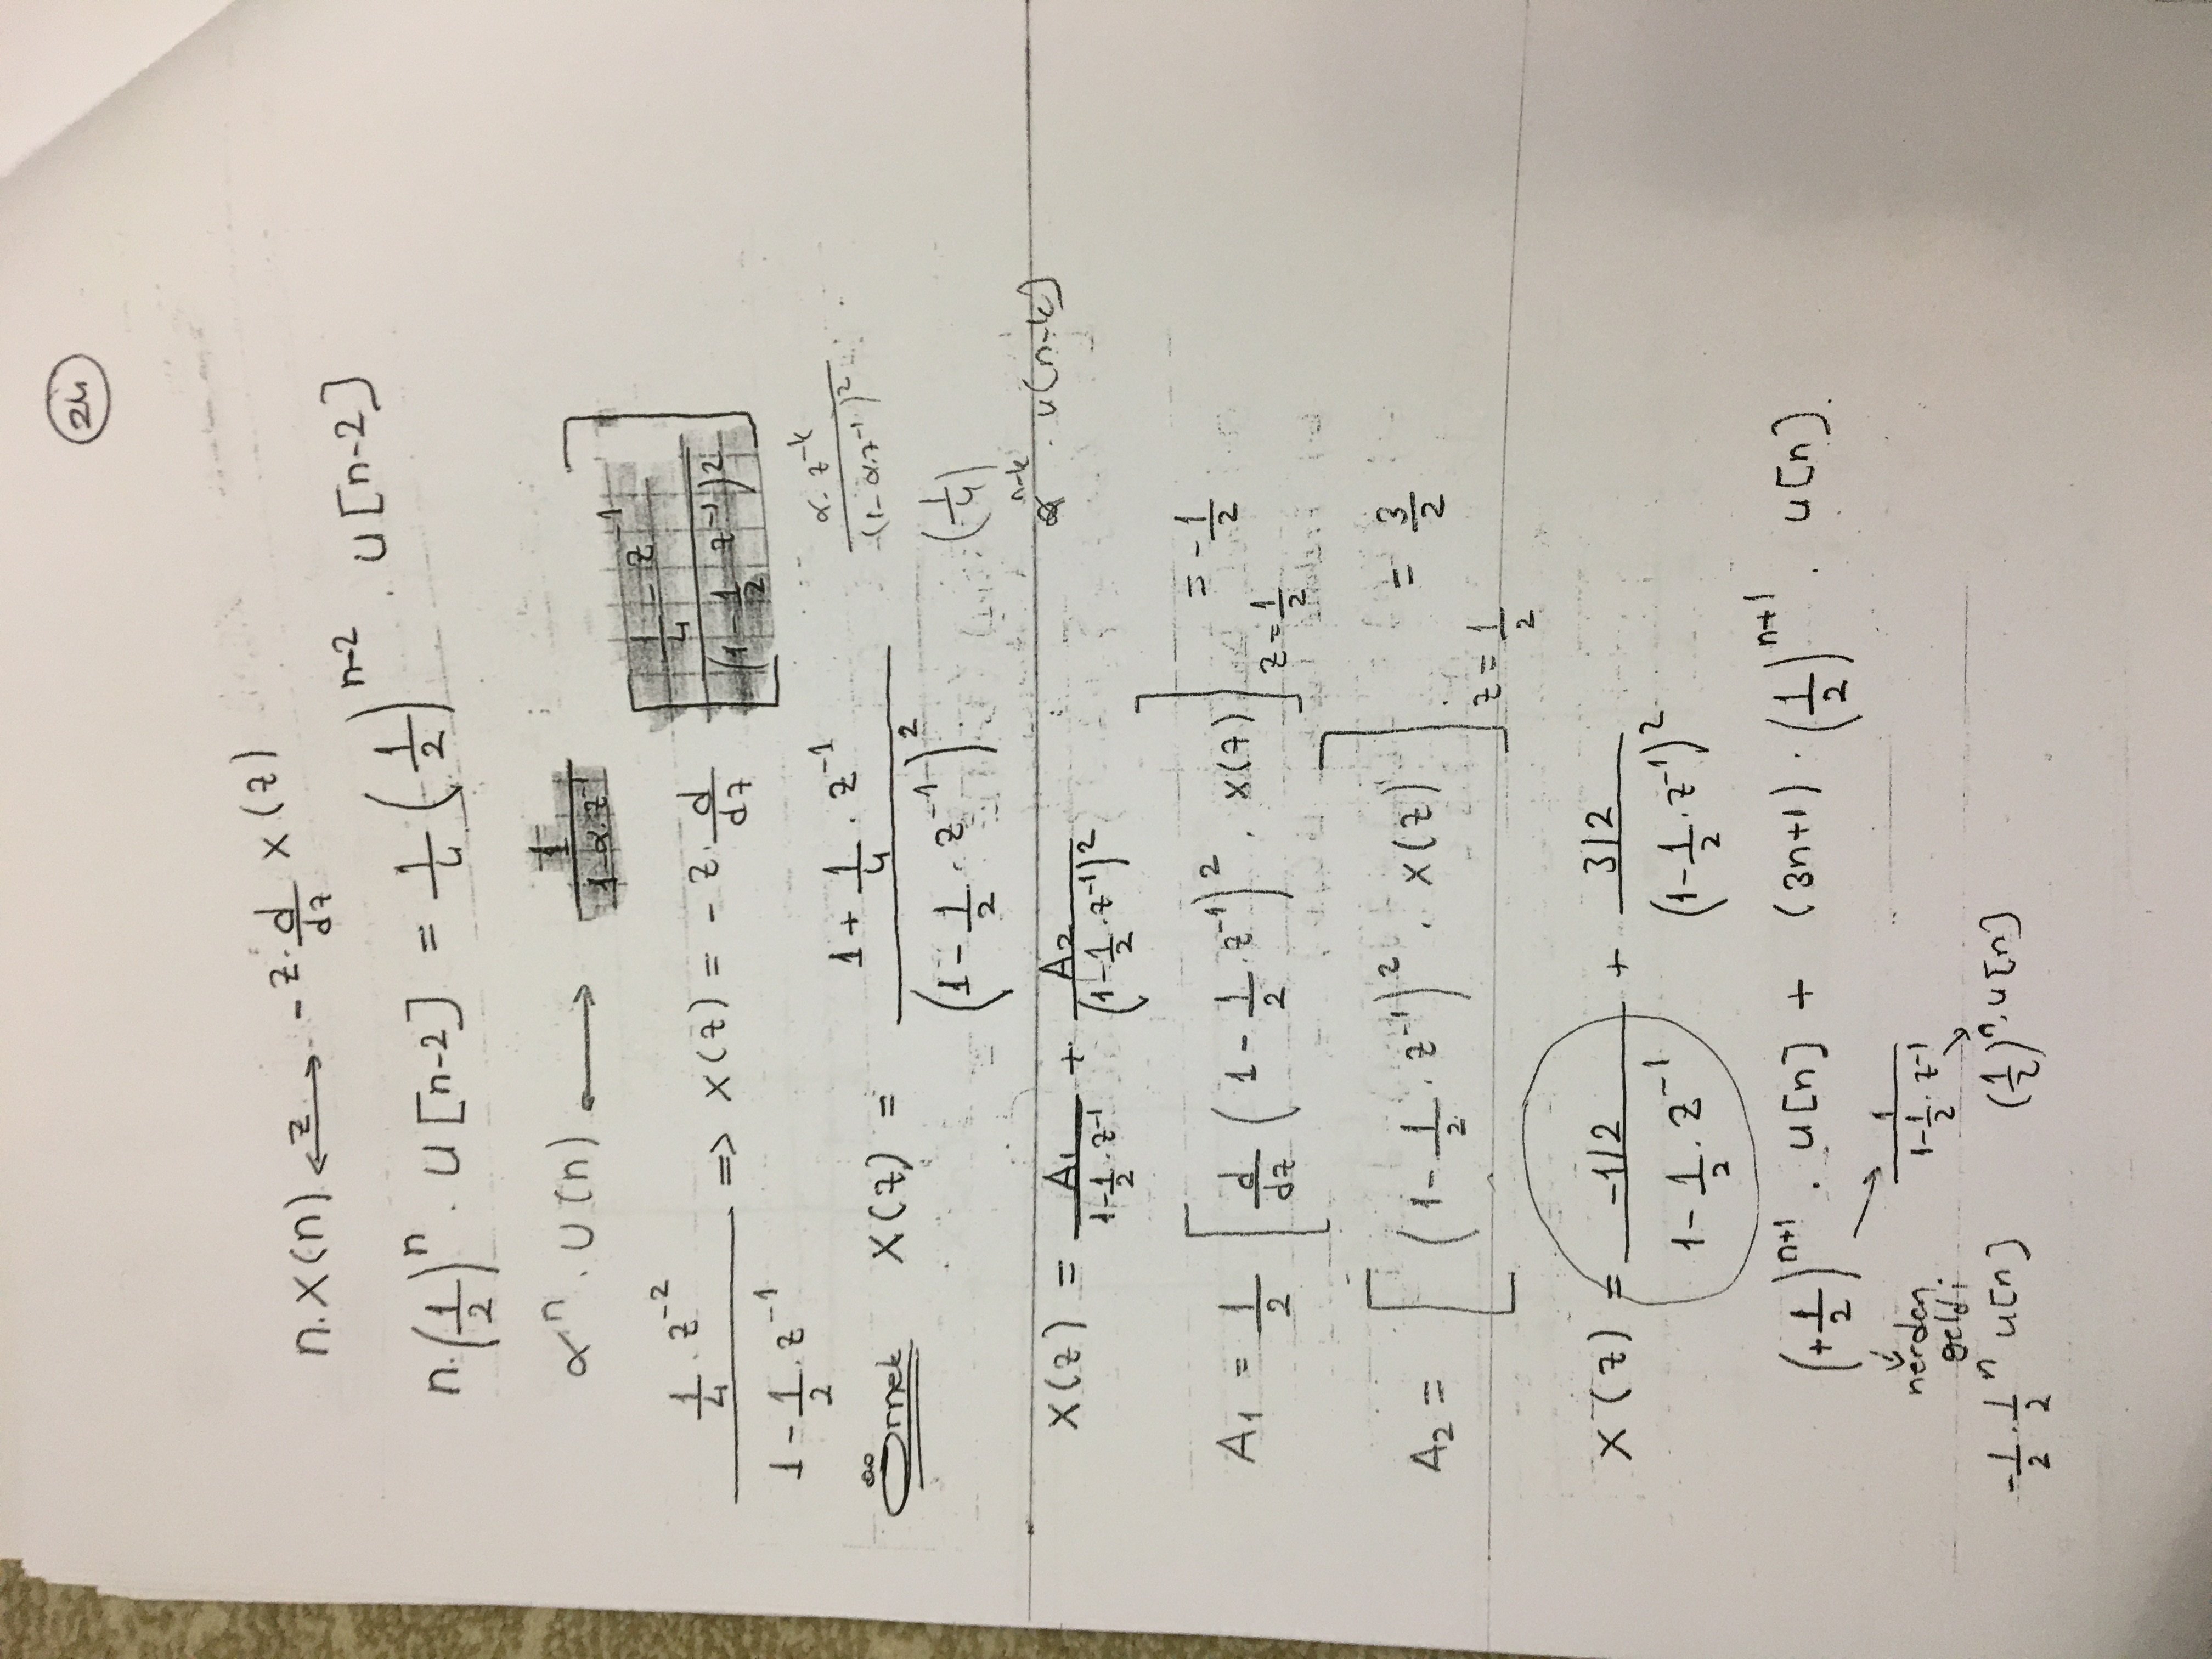 24
n.x(n) <-z-> -z. d/dz x(z)
n.(1/2)^n . u[n-2] = 1/4 (1/2)^(n-2) . u[n-2]
α^n . u(n) <-> 1/(1-α.z^-1)
(1/4 . z^-2)/(1 - 1/2 . z^-1) => x(z) = -z. d/dz [(1/4 - z^-1)/(1 - 1/2 z^-1)^2]
Örnek x(z) = (1 + 1/4 . z^-1)/(1 - 1/2 . z^-1)^2
α. z^-k/(1-α.z^-1)^2
(1/4)
α^(n-k) . u(n-k)
x(z) = A1/(1 - 1/2 . z^-1) + A2/(1 - 1/2 . z^-1)^2
A1 = 1/2 [d/dz (1 - 1/2 . z^-1)^2 . x(z)] z=1/2 = -1/2
A2 = [(1 - 1/2 . z^-1)^2 . x(z)] z=1/2 = 3/2
x(z) = (-1/2)/(1 - 1/2 . z^-1) + (3/2)/(1 - 1/2 . z^-1)^2
(+1/2)^(n+1) . u[n] + (3n+1) . (1/2)^(n+1) . u[n].
nerden
geldi
1/(1 - 1/2 . z^-1)
-1/2 . 1/2^n u[n]
(1/2)^n . u[n]